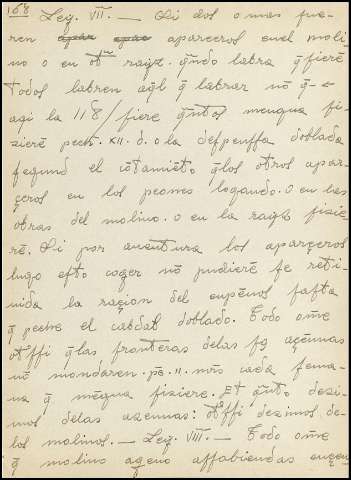 168
Ley. VII. — Si dos o mas fue-
ren apar apar aparceros enel moli-
no o en ot᷃ raiz. q̄ndo labra q̄ fierē
todos labren aq̄l q̄ labrar nō q̄-
aqi la 118/ fiere q̄ntos mengua fi-
zierē pech. XII. d. o la defpenffa doblada
fegund el cōtamiēto q̄los otros apar-
çeros en los peones logando. o en las
otras del molino. o en la rayz fizie-
rē. Si por auentura los aparçeros
luego efto coger nō pudierē fe reti-
nida la raçion del conpēnos fafta
q̄ peche el cabdal doblado. Todo ome
otoffi q̄las fronteras delas açennas
nō mondaren. pē. II. mr̄o cada fema-
na q̄ mēgua fiziere. Et q̄nto dezi-
mos delas azennas: otoffi dezimos de-
los molinos. — Ley. VIII. — Todo ome
q̄ molino ageno affabiendas